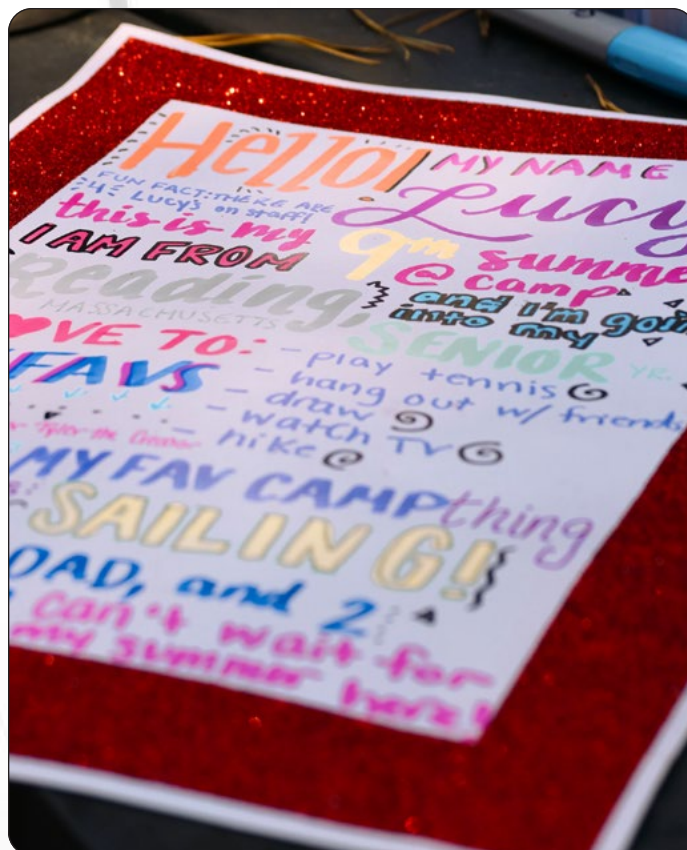 Hello! MY NAME
Lucy
FUN FACT: THERE ARE
4 Lucy's on staff!
this is my 9th summe
@ camp
I AM FROM
Reading,
MASSACHUSETTS
and I'm goin
into my
SENIOR YR.
OVE TO: - play tennis
- hang out w/ friends
FAVS - draw
- watch TV
- hike
Tyler the Creator
MY FAV CAMP thing
SAILING!
DAD, and 2
can't wait for
my summer here!